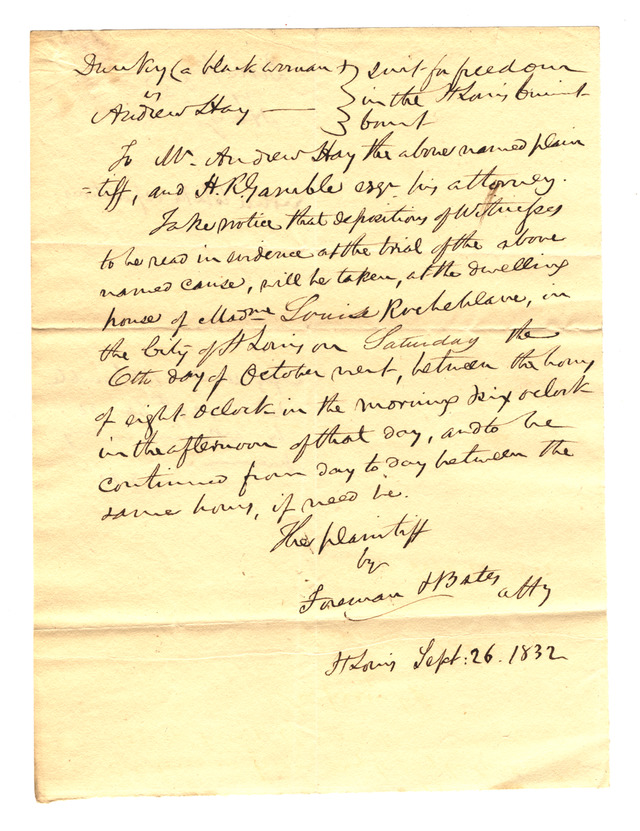 Dunky (a black woman } suit for freedom
vs } in the St Louis Circuit
Andrew Hay — } Court
To Mr. Andrew Hay the above named plain
=tiff, and H. R. Gamble esqr his attorney.
Take notice that depositions of Witnesses
to be read in evidence at the trial of the above
named cause, will be taken, at the dwelling
house of Madme Louise Rocheblave, in
the City of St Louis on Saturday the
6th day of October next, between the hours
of eight oclock in the morning & six oclock
in the afternoon of that day, and to be
continued from day to day between the
same hours, if need be.
The plaintiff
by
Foreman & Bates atty
St Louis Sept: 26. 1832